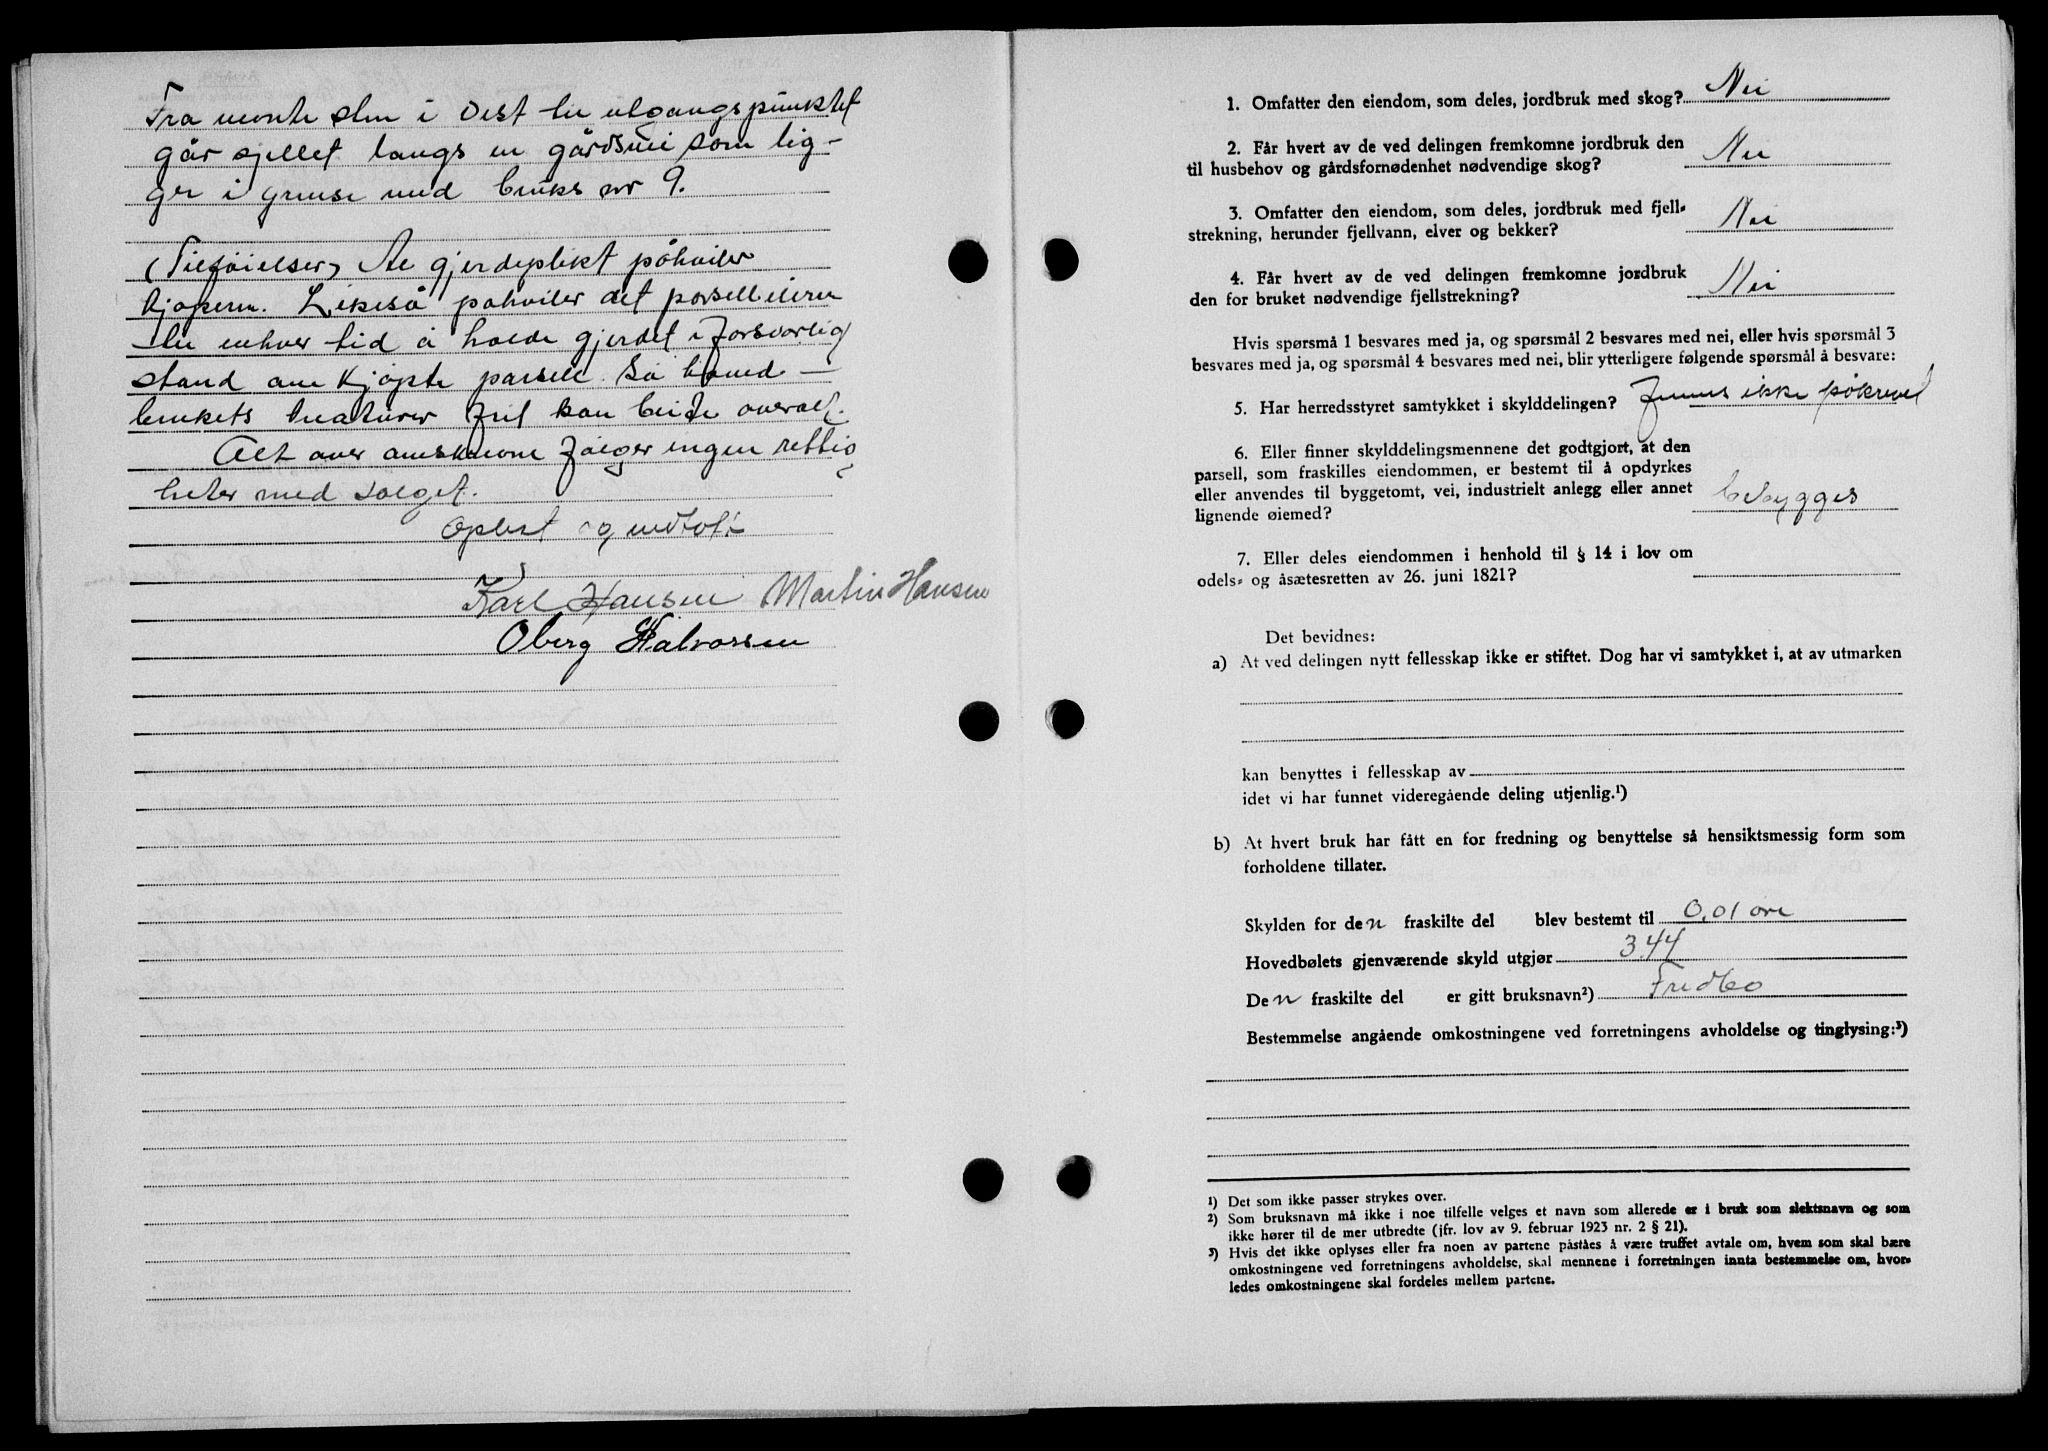 Fra nevnte sten i Vest til utgangspunktet
går sjellet langs en gårdsvei som lig-
ger i grense med bruks nr 9.
(Tilføielser) Al gjerdeplikt påhviler
kjøperen. Likeså påhviler det parselleieren
til enhver tid å holde gjerdet i forsvarlig
stand om kjøpte parsell. Så hoved-
brukets kreaturer frit kan beite overalt.
Alt over omskrevne følger ingen rettig
heter med salget.
Oplest og vedtatt
Karl Hansen Martin Hansen
Oberg Halvorsen
1. Omfatter den eiendom, som deles, jordbruk med skog? Nei
2. Får hvert av de ved delingen fremkomne jordbruk den
til husbehov og gårdsfornødenhet nødvendige skog? Nei
3. Omfatter den eiendom, som deles, jordbruk med fjell-
strekning, herunder fjellvann, elver og bekker? Nei
4. Får hvert av de ved delingen fremkomne jordbruk
den for bruket nødvendige fjellstrekning? Nei
Hvis spørsmå 1 besvares med ja, og spørsmål 2 besvares med nei, eller hvis spørsmål 3
besvares med ja, og spørsmål 4 besvares med nei, blir ytterligere følgende spørsmål å besvare:
5. Har herredsstyret samtykket i skylddelingen? Finnes ikke påkrevet
6. Eller finner skylddelingsmennene det godtgjort, at den
parsell, som fraskilles eiendommen, er bestemt til å opdyrkes
eller anvendes til byggetomt, vei, industrielt anlegg eller annet
lignende øiemed? bebygges
7. Eller deles eiendommen i henhold til § 14 i lov om
odels- og åsætesretten av 26. juni 1821?
Det bevidnes:
a) At ved delingen nytt fellesskap ikke er stiftet. Dog har vi samtykket i, at av utmarken
kan benyttes i fellesskap av
idet vi har funnet videregående deling utjenlig.¹)
b) At hvert bruk har fått en for fredning og benyttelse så hensiktsmessig form som
forholdene tillater.
Skylden for den fraskilte del blev bestemt til 0,01 øre
Hovedbølets gjenværende skyld utgjør 3.44
Den fraskilte del er gitt bruksnavn²) Fredbo
Bestemmelse angående omkostningene ved forretningens avholdelse og tinglysing:³)
¹) Det som ikke passer strykes over.
²) Som bruksnavn må ikke i noe tilfelle velges et navn som allerede er i bruk som slektsnavn og som
ikke hører til de mer utbredte (jfr. lov av 9. februar 1923 nr. 2 § 21).
³) Hvis det ikke oplyses eller fra noen av partene påståes å være truffet avtale om, hvem som skal bære
omkostningene ved forretningens avholdelse, skal mennene i forretningen innta bestemmelse om, hvor-
ledes omkostningene skal fordeles mellem partene.